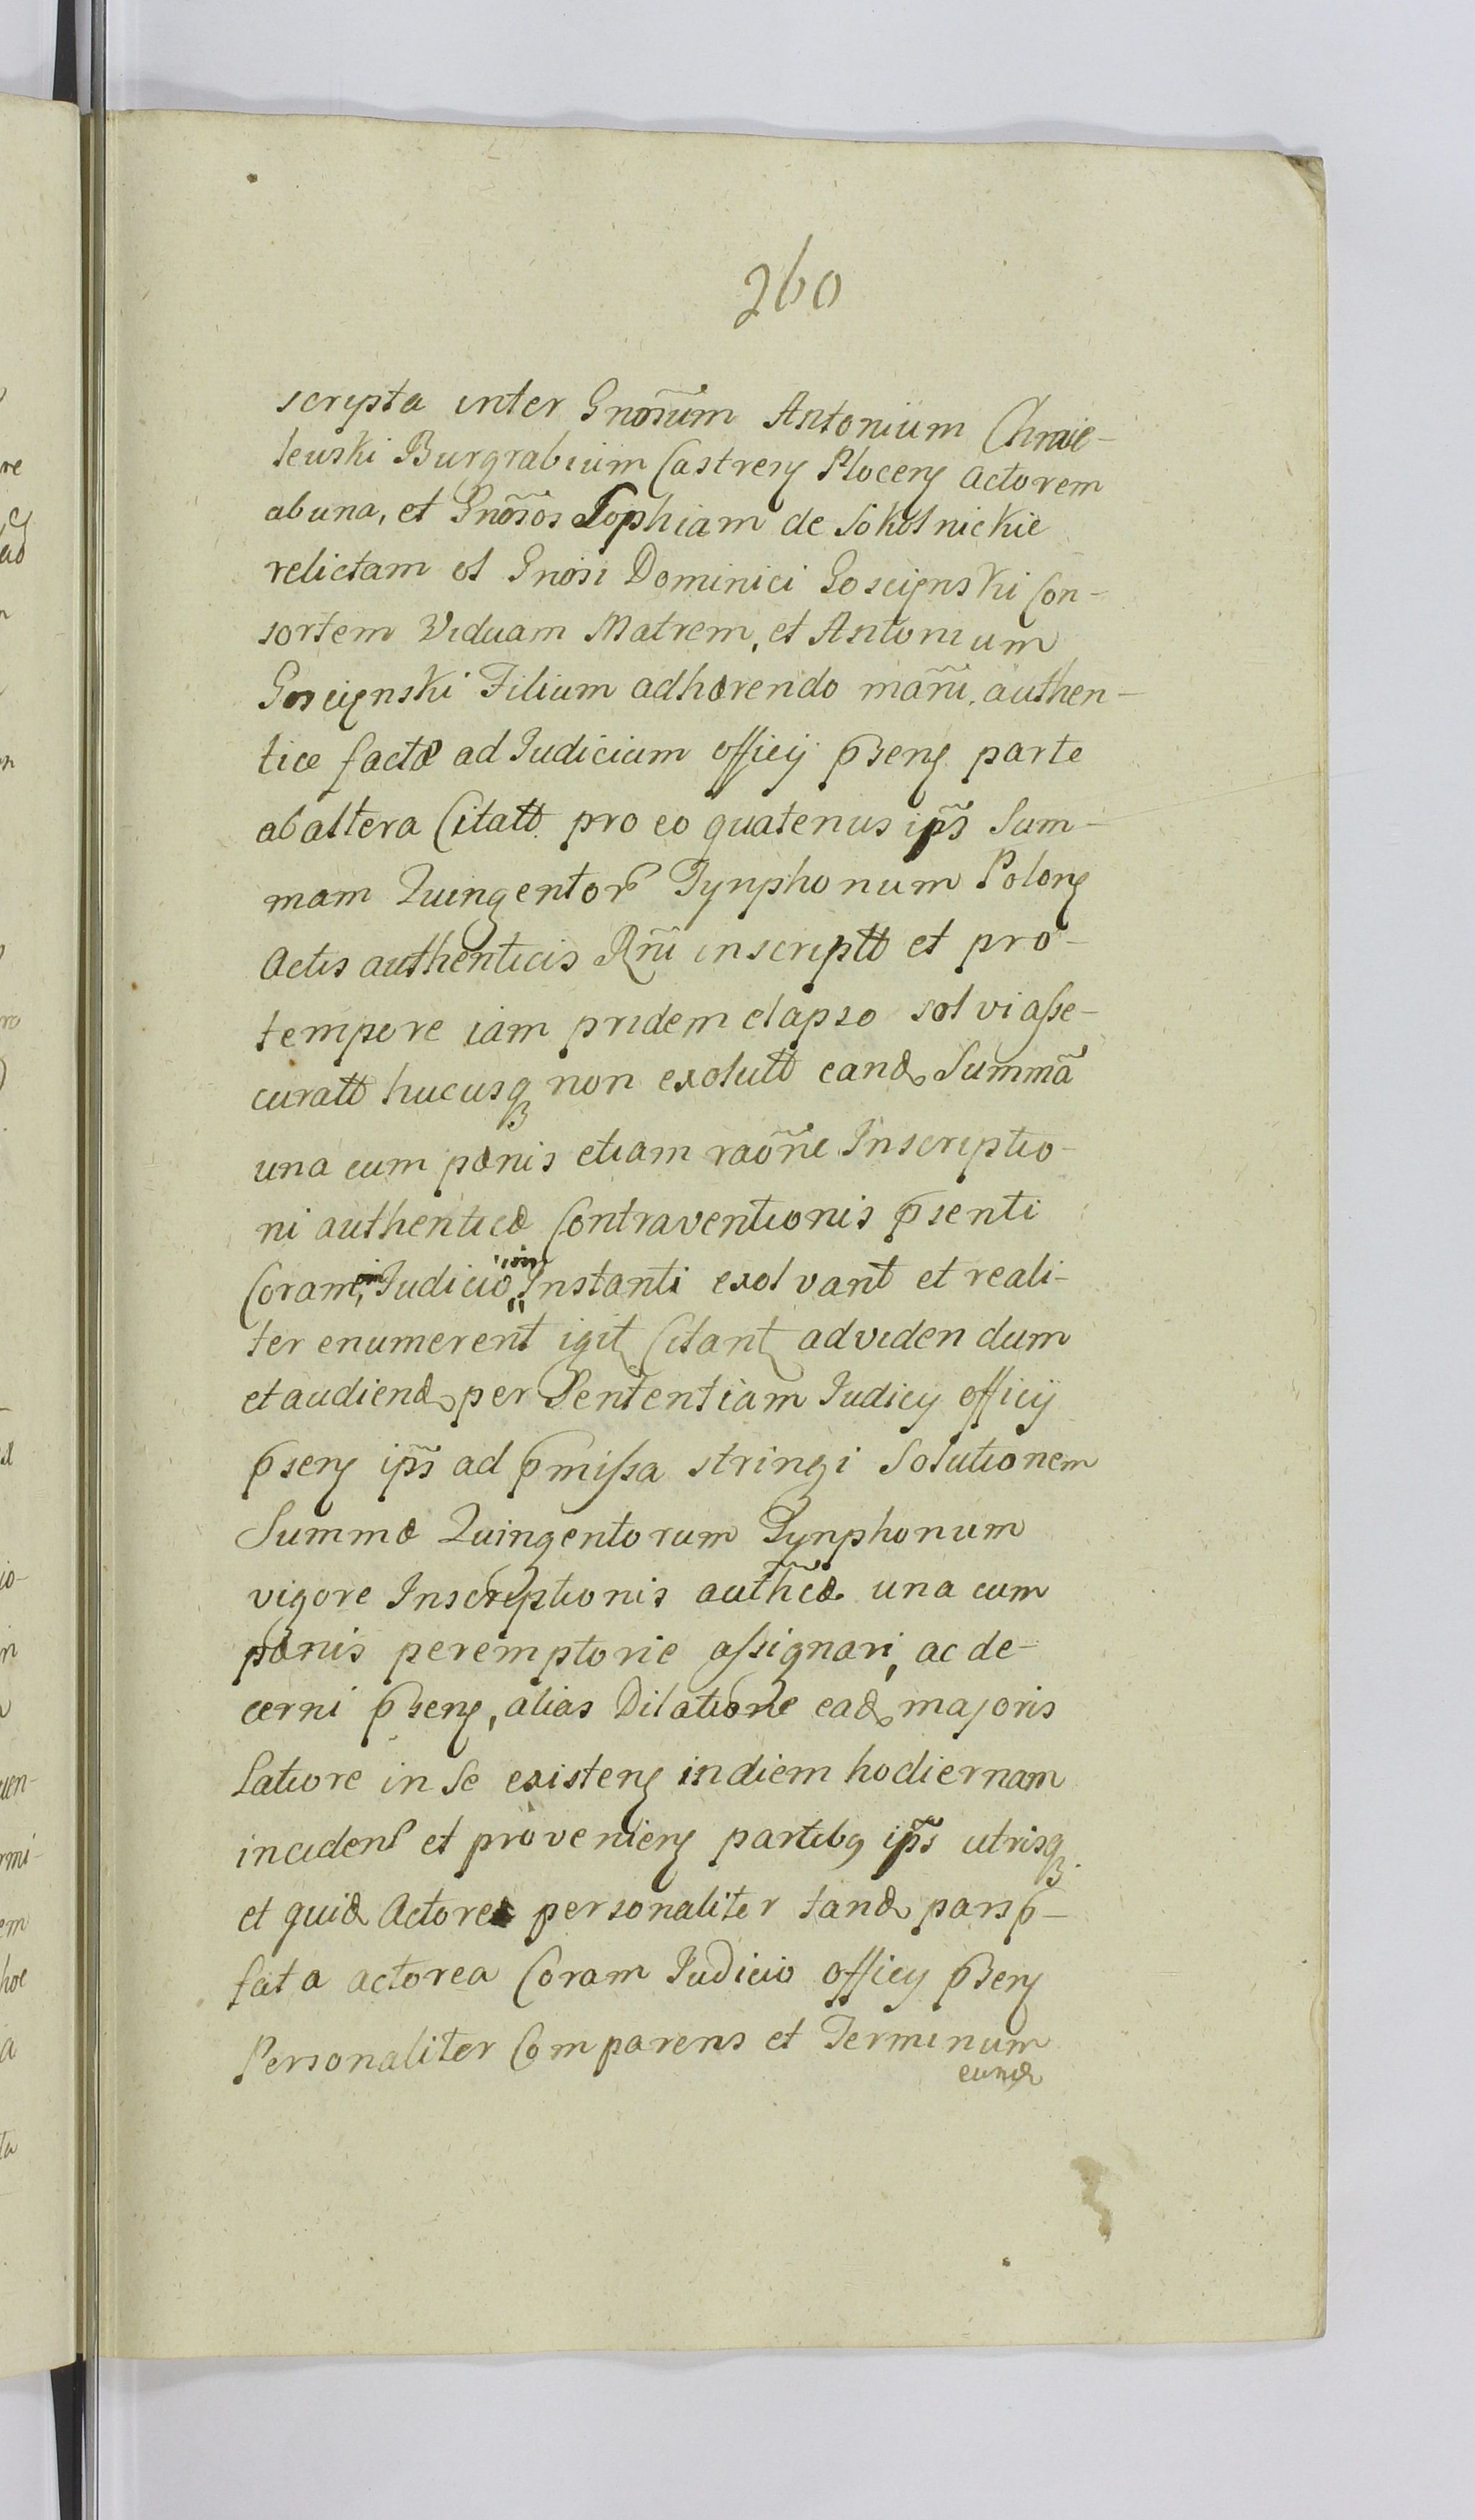 260
scripta inter Gnõsum Antonium Chmie-
lewski Burgrabium Castreñ Ploceñ Actorem
ab una, et Gnõsos Zophiam de Sokolnickie
relictam ol Gnõsi Dominici Goscięnski Con-
sortem Viduam Matrem, et Antonium
Goscięnski Filium adhærendo mañi authen-
tice factæ ad Judicium officij p̃señ parte
ab altera Citatt pro eo quatenus ip̃s Sum-
mam Quingentor Tynphonum Poloñ
Actis authenticis Rñi inscriptt et pro
tempore iam pridem elapso solvi asse-
curatt hucusq non exolutt eand Summã
una cum pænis etiam raõne Inscriptio-
ni authenticæ Contraventionis p̃senti
Coram Judicio Instanti exolvant et reali-
ter enumerent igit Citant ad videndum
et audiend per Sententiam Judicij officij
p̃señ ip̃s ad p̃missa stringi Solutionem
Summæ Quingentorum Tynphonum
vigore Inscriptionis auth̃cæ una cum
pænis peremptorie assignari, ac de-
cerni p̃señ, alias Dilatione ead majoris
Latiore in Se existeñ in diem hodiernam
incident et provenieñ partibq ip̃s utrisq
et quid Actorea personaliter tand pars p̃-
fata actorea Coram Judicio officij p̃señ
Personaliter Comparens et Terminum
eund